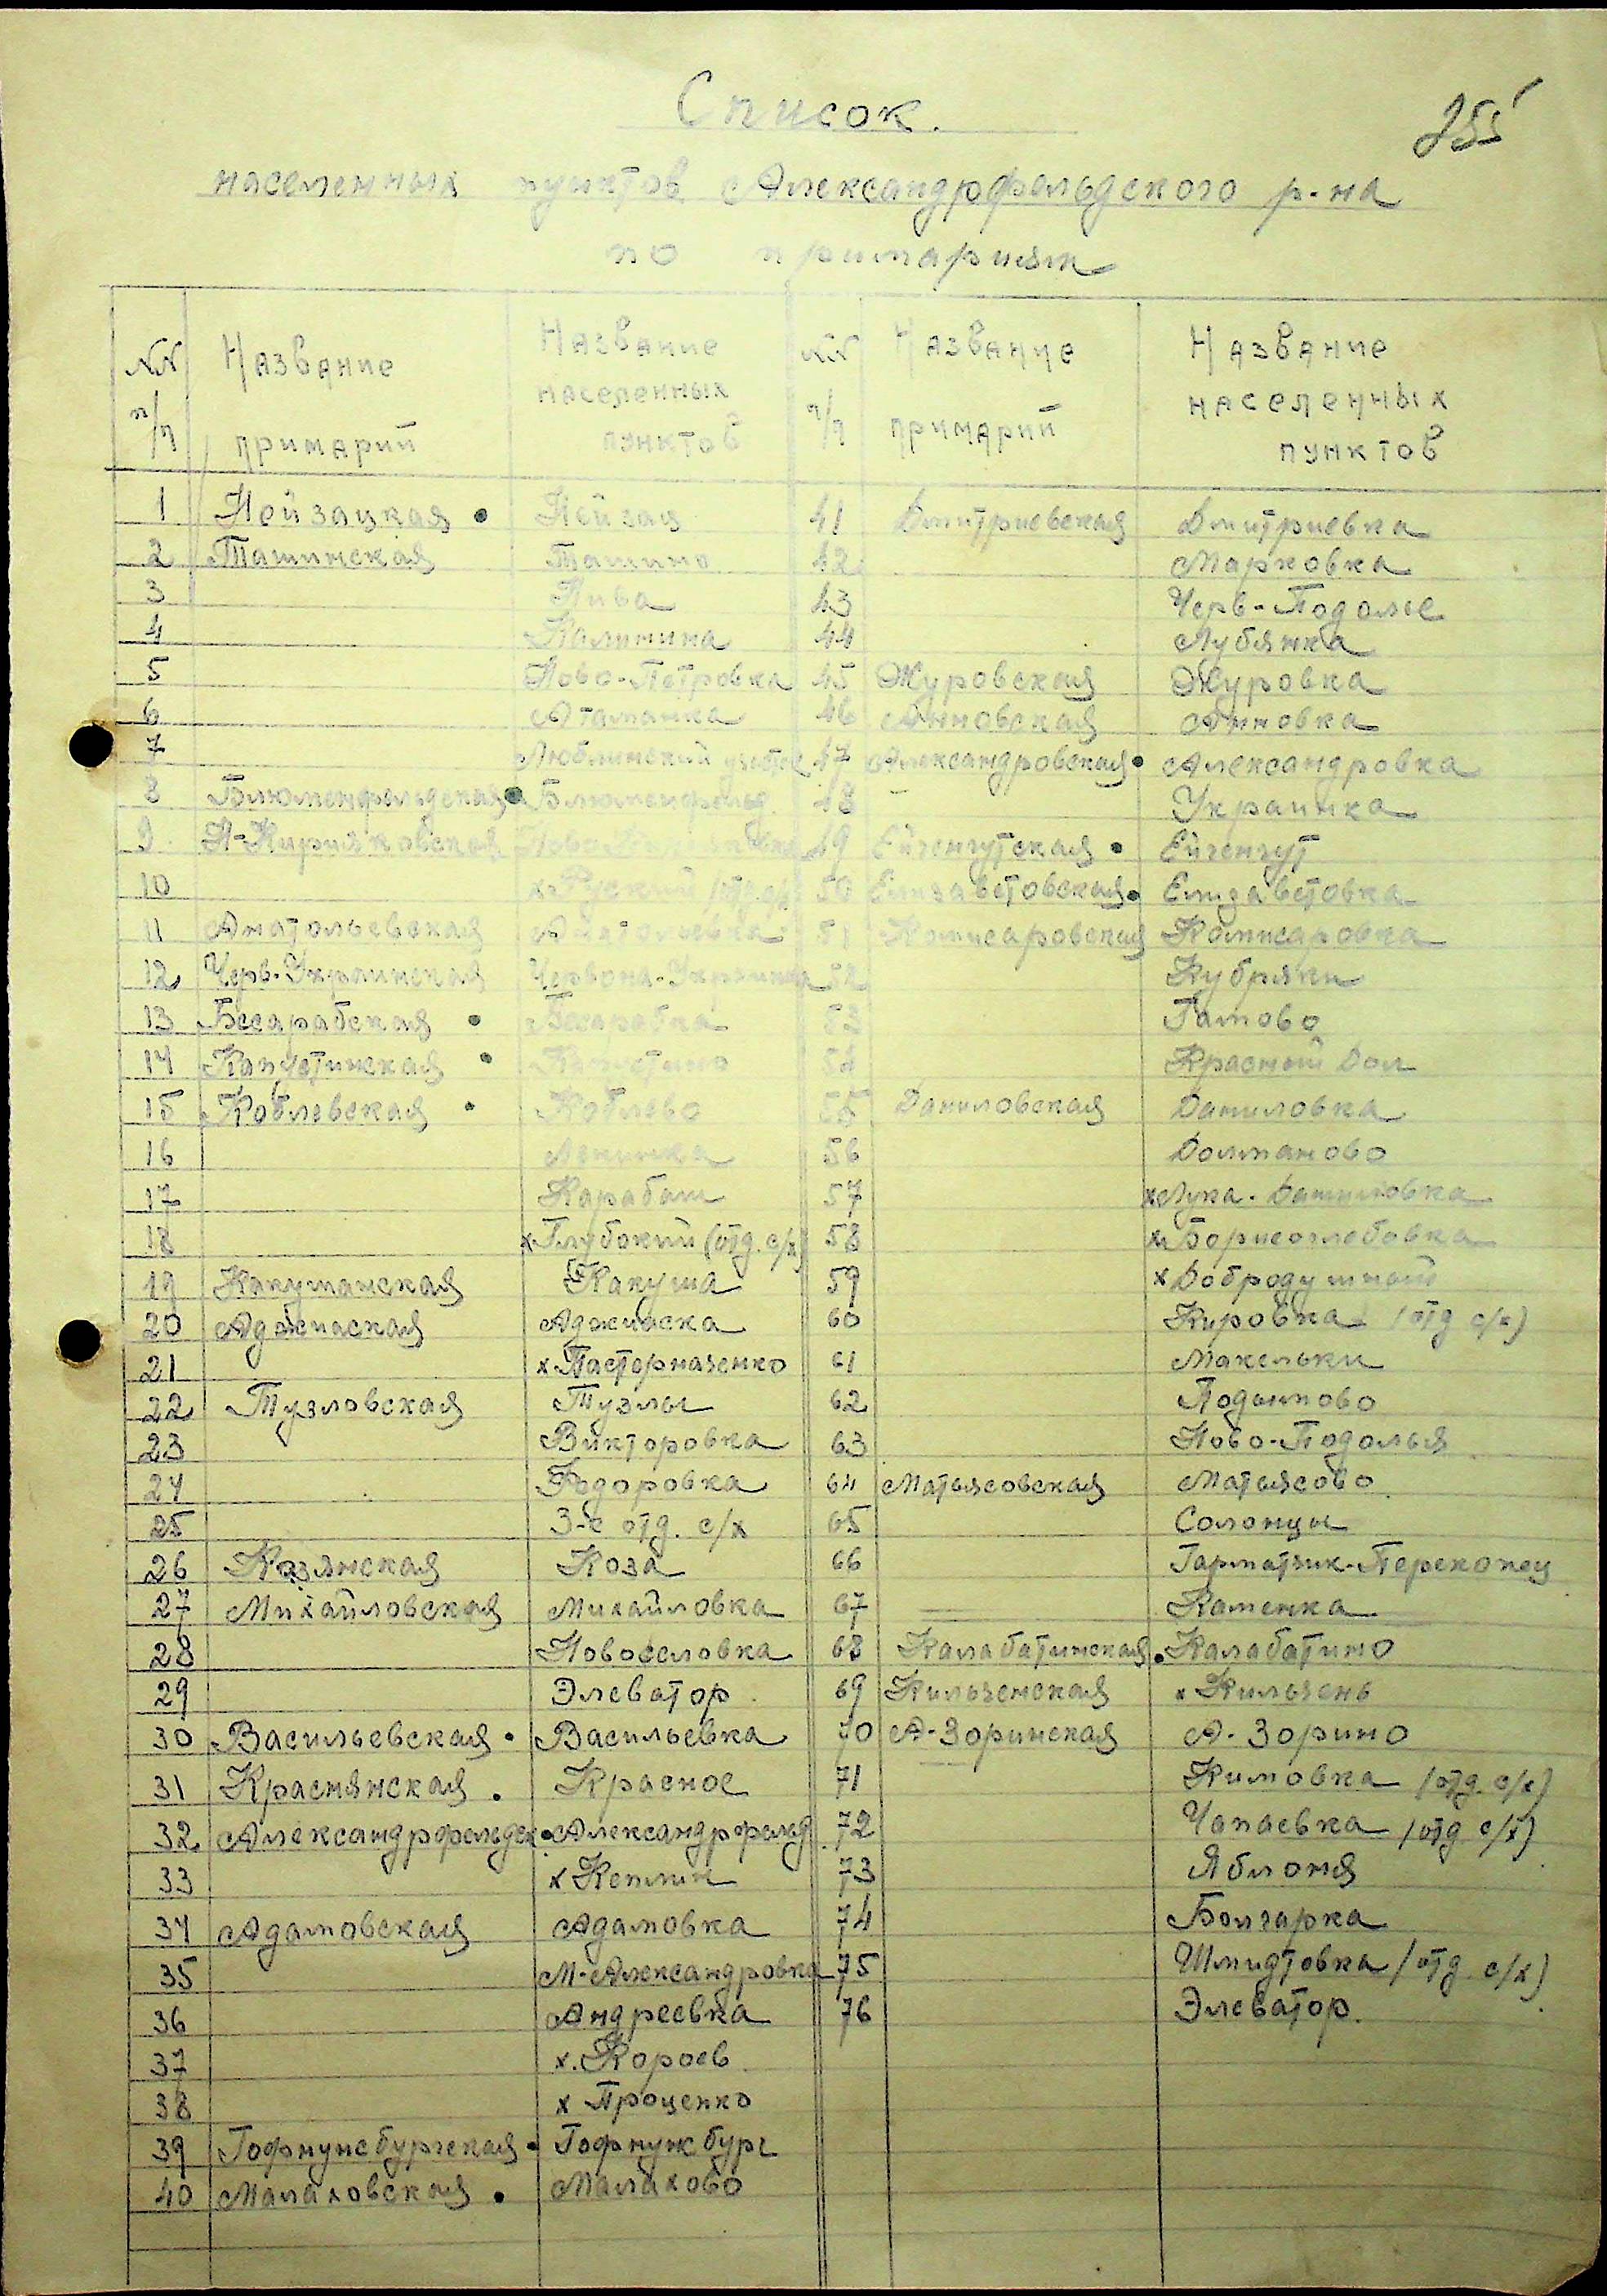 255
Список.
населенных пунктов Александрфельдского р-на
по примариям
NN п/п Название примарий Название населенных пунктов NN п/п Название примарий Название населенных пунктов
1 Нейзацкая • Нейзац 41 Дмитриевская Дмитриевка
2 Ташинская Ташино 42 Марковка
3 Нива 43 Черв-Подолье
4 Калинина 44 Лубянка
5 Ново-Петровка 45 Журовская Журовка
6 Атаманка 46 Анновская Анновка
7 Люблинский 47 Александровская • Александровка
8 Блюменфельдская • Блюменфельд 48 Украинка
9 Н-Кирияковская 49 Ейгенгутская • Ейгенгут
10 50 Елизаветовская • Елизаветовка
11 Анатольевская Анатольевка 51 Комисаровская Комисаровка
12 Черв-Украинская Червона-Украинка 52 Кубряки
13 Бесарабская • Бесарабка 53 Гамово
14 Капустинская • Капустино 54 Красный Дол
15 Коблевская • Коблево 55 Даниловская Даниловка
16 Ленинка 56 Долманово
17 Карабаш 57 х Лука-Даниловка
18 х Глубокий (отд. с/х) 58 х Борисоглебовка
19 Какушанская Какуша 59 х Добродушный
20 Аджиаская Аджиаска 60 Кировка (отд с/х)
21 х Пастерначенко 61 Макельки
22 Тузловская Тузлы 62 Подымово
23 Викторовка 63 Ново-Подолья
24 Фодоровка 64 Матьясовская Матьясово
25 3-е отд. с/х 65 Солонцы
26 Козянская Коза 66 Гарматзик-Перекопец
27 Михайловская Михайловка 67 Каменка
28 Новоселовка 68 Калабатинская • Калабатино
29 Элеватор 69 Кильченская х Кильчень
30 Васильевская • Васильевка 70 А-Зоринская А-Зорино
31 Краснянская • Красное 71 Кимовка (отд. с/х)
32 Александрфельдск • Александрфельд 72 Чапаевка (отд с/х)
33 х Кеплин 73 Яблоня
34 Адамовская Адамовка 74 Болгарка
35 М-Александровка 75 Шмидтовка (отд с/х)
36 Андреевка 76 Элеватор.
37 х. Короев
38 х Проценко
39 Гофнунсбургская • Гофнунсбург
40 Малаховская • Малахово